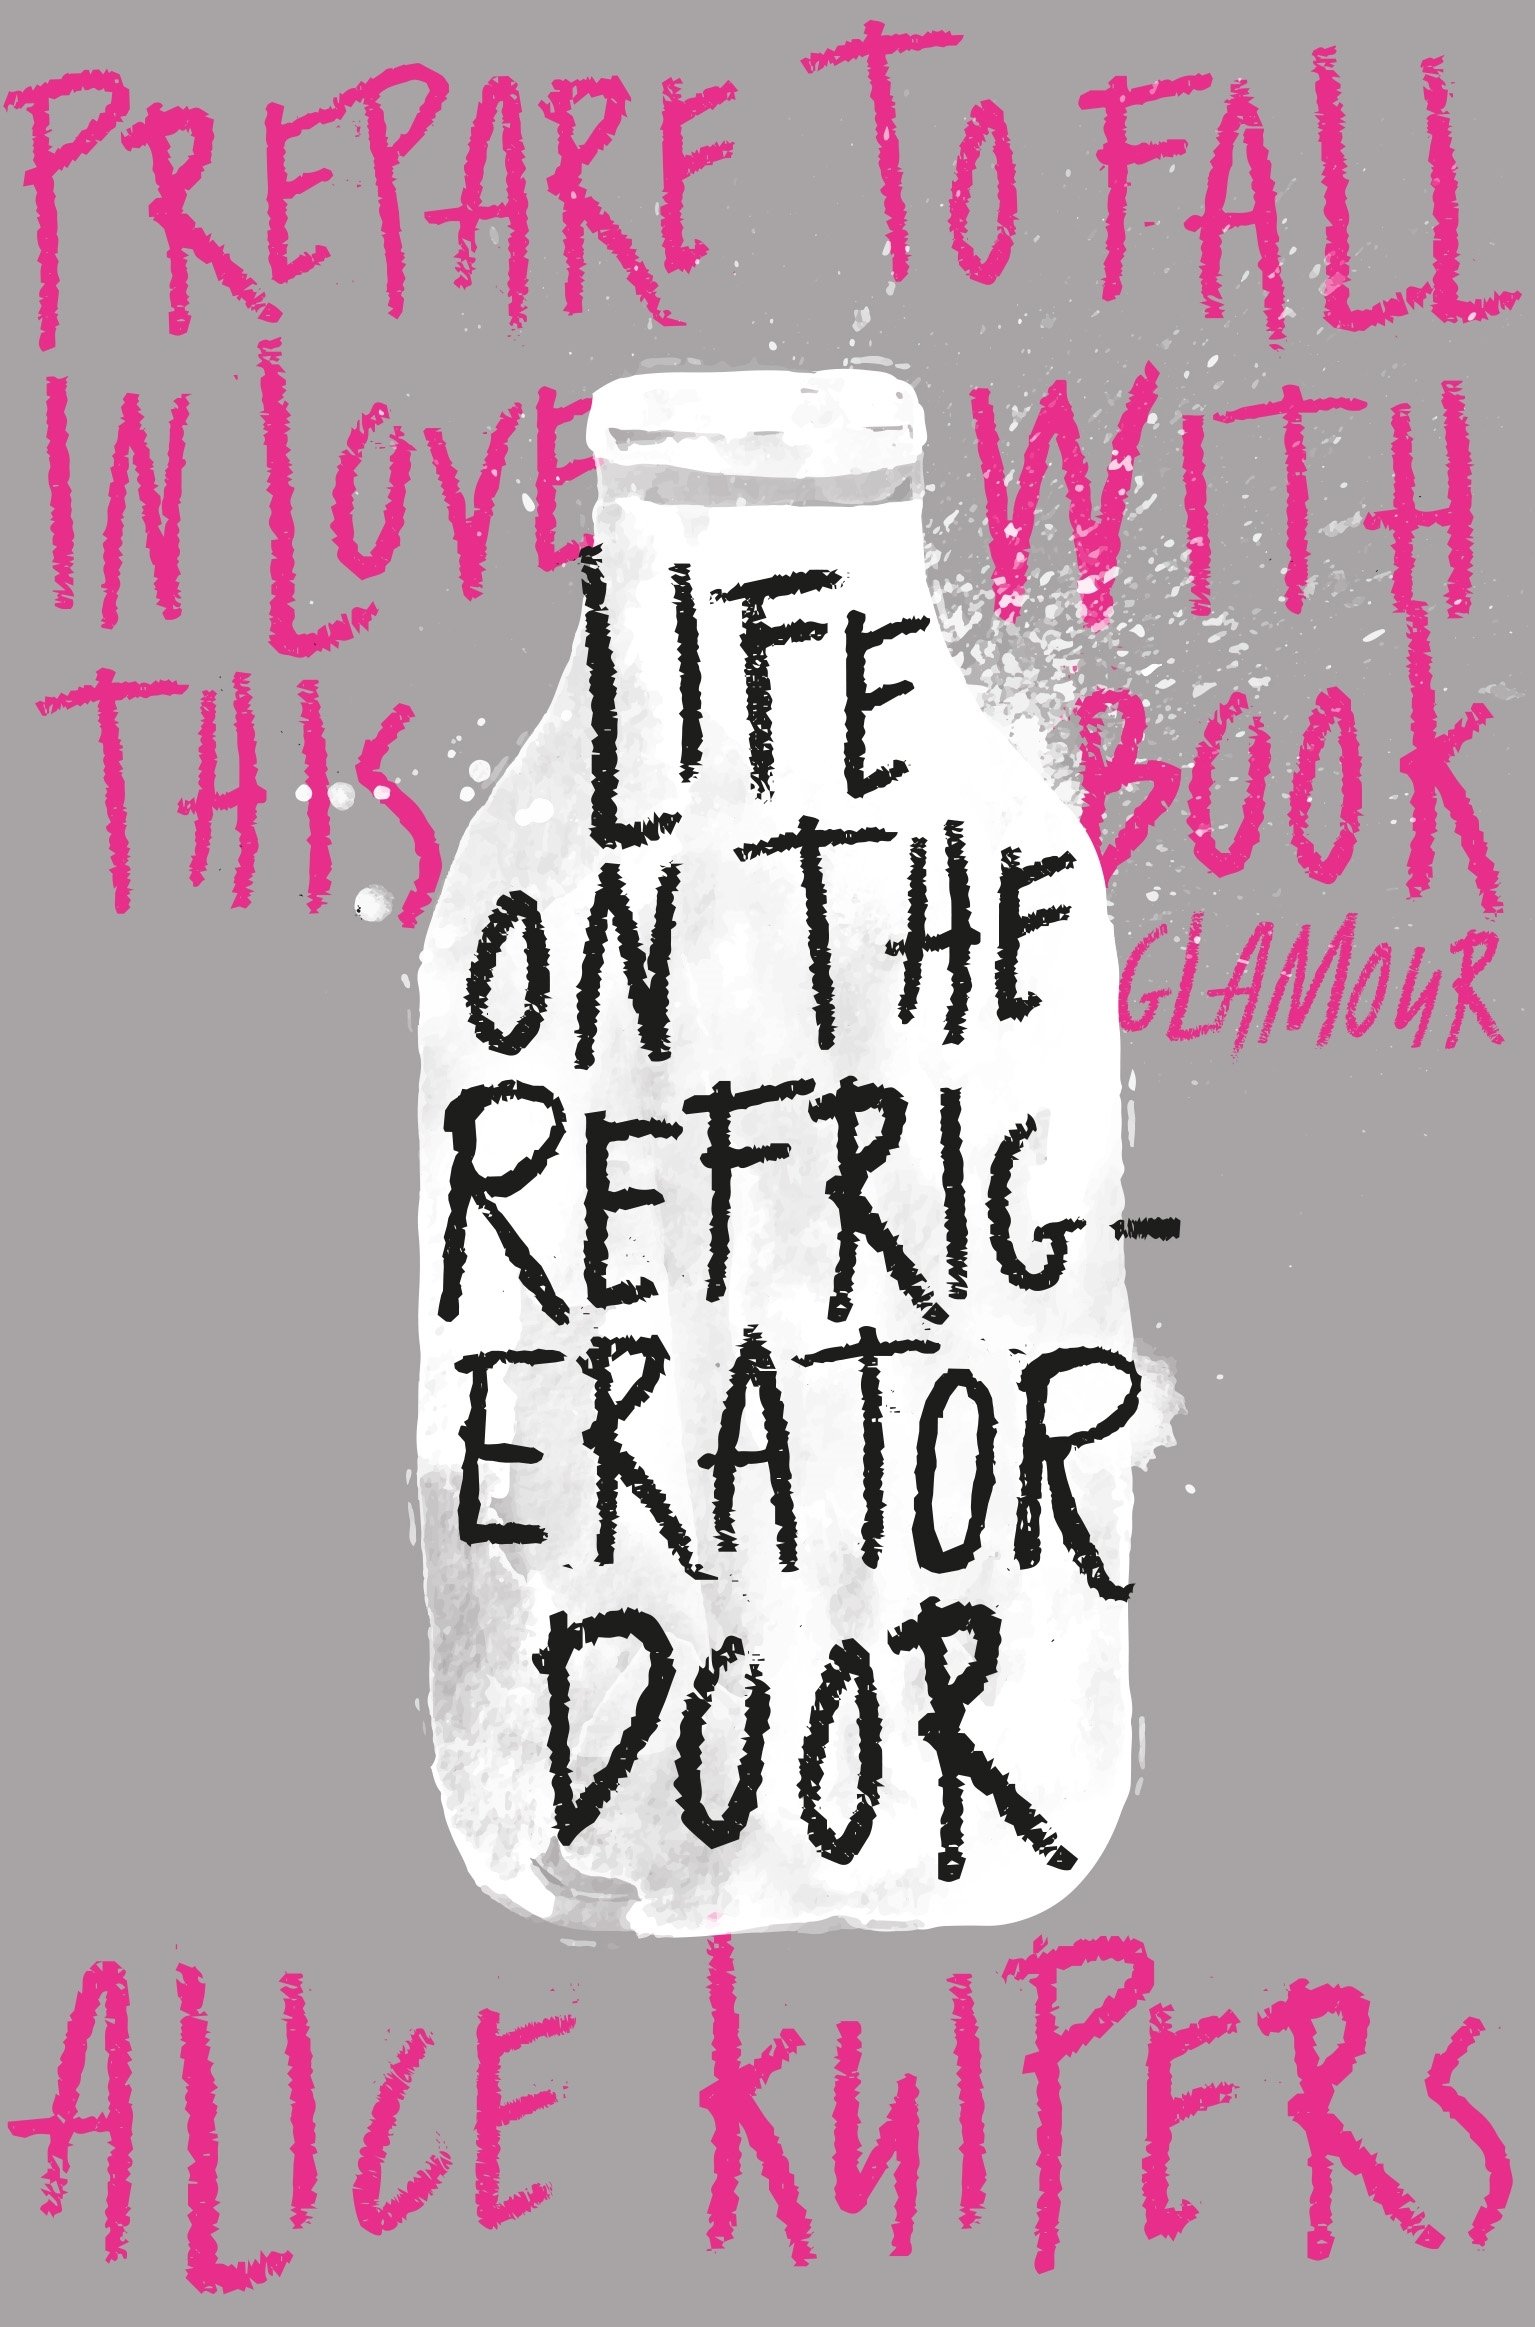 PREPARE TO FALL
IN LOVE WITH
THIS BOOK
GLAMOUR
LIFE
ON THE
REFRIG-
ERATOR
DOOR
ALICE KUIPERS